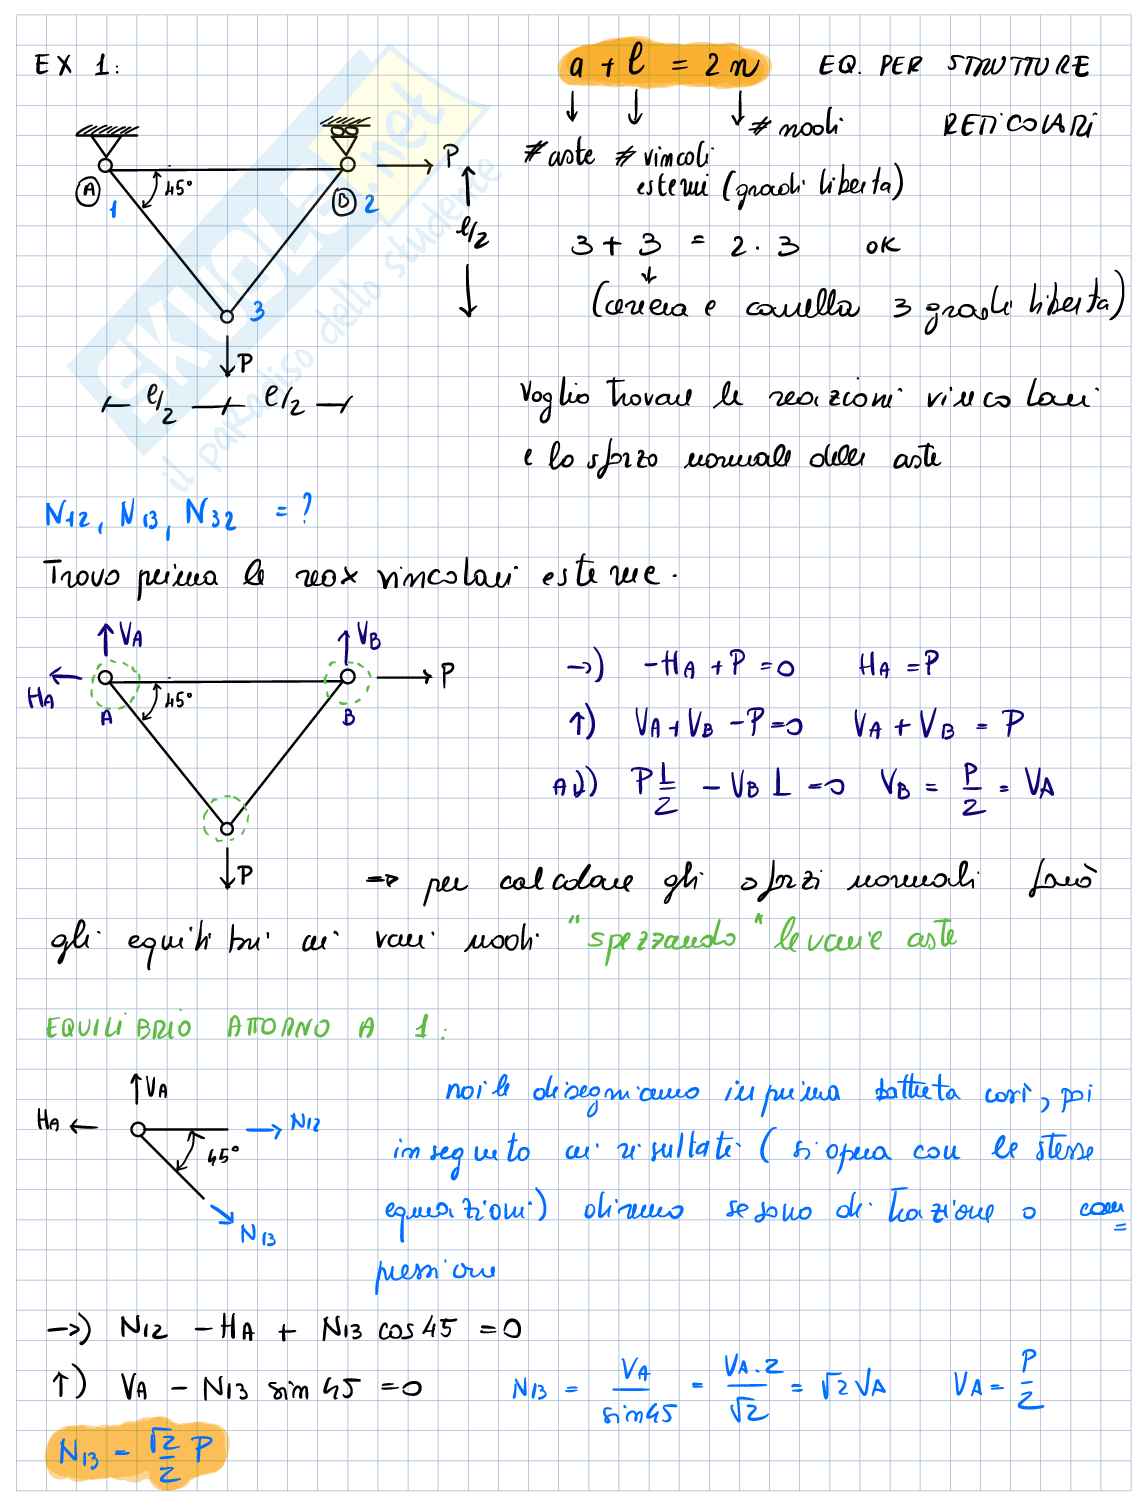 EX 1:
a + l = 2n EQ. PER STRUTTURE
# aste # vincoli # nodi RETICOLARI
esterni (gradi libertà)
A 1 45° B 2 P l/2
3 + 3 = 2 · 3 OK
3
(cerniera e carrello 3 gradi libertà)
P
l/2 l/2
Voglio trovare le reazioni vincolari
e lo sforzo normale delle aste
N12, N13, N32 = ?
Trovo prima le reax vincolari esterne.
VA VB
HA A 45° B P
→) -HA + P = 0 HA = P
↑) VA + VB - P = 0 VA + VB = P
A↓)) P L/2 - VB L = 0 VB = P/2 = VA
P
→ per calcolare gli sforzi normali farò
gli equilibri ai vari nodi "spezzando" le varie aste
EQUILIBRIO ATTORNO A 1:
VA
HA N12
45°
N13
noi le disegniamo in prima battuta così, poi
in seguito ai risultati (si opera con le stesse
equazioni) diremo se sono di trazione o com=
pressione
→) N12 - HA + N13 cos 45 = 0
↑) VA - N13 sin 45 = 0 N13 = VA/sin45 = VA·2/√2 = √2 VA VA = P/2
N13 = √2/2 P
SKUOLA.net
il paradiso dello studente